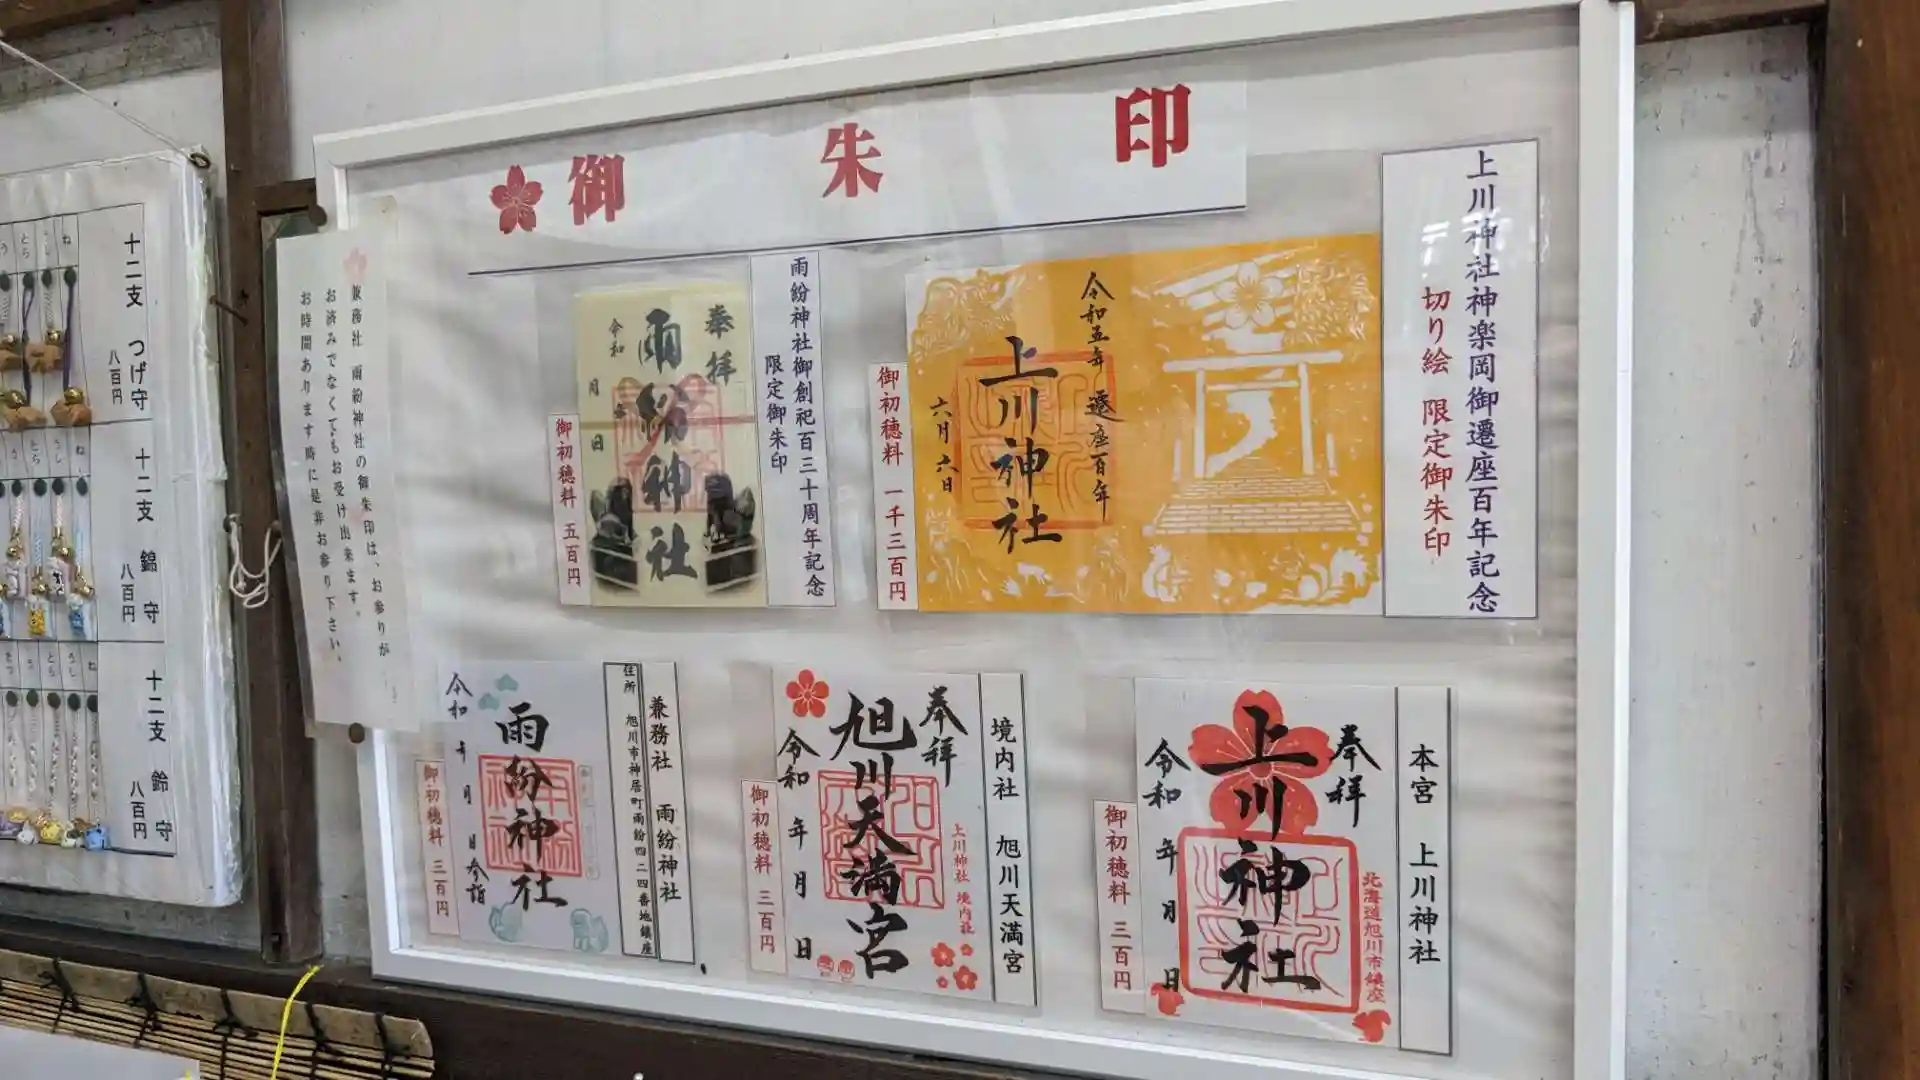 御朱印
上川神社神楽岡御遷座百年記念
切り絵 限定御朱印
令和五年 遷座百年
上川神社
六月六日
御初穂料 一千三百円
雨紛神社御創祀百三十周年記念
限定御朱印
奉拝
雨紛神社
令和 月 日
御初穂料 五百円
本宮 上川神社
奉拝
上川神社
北海道旭川市鎮座
令和 年 月 日
御初穂料 三百円
境内社 旭川天満宮
奉拝
旭川天満宮
上川神社 境内社
令和 年 月 日
御初穂料 三百円
兼務社 雨紛神社
住所 旭川市神居町雨紛四二四番地鎮座
雨紛神社
令和 年 月 日参詣
御初穂料 三百円
兼務社 雨紛神社の御朱印は、お参りが
お済みでなくてもお受け出来ます。
お時間あります時に是非お参り下さい。
十二支 つげ守
八百円
ね
うし
とら
う
十二支 錦守
八百円
ね
うし
とら
う
十二支 鈴守
八百円
ね
うし
とら
う
たつ